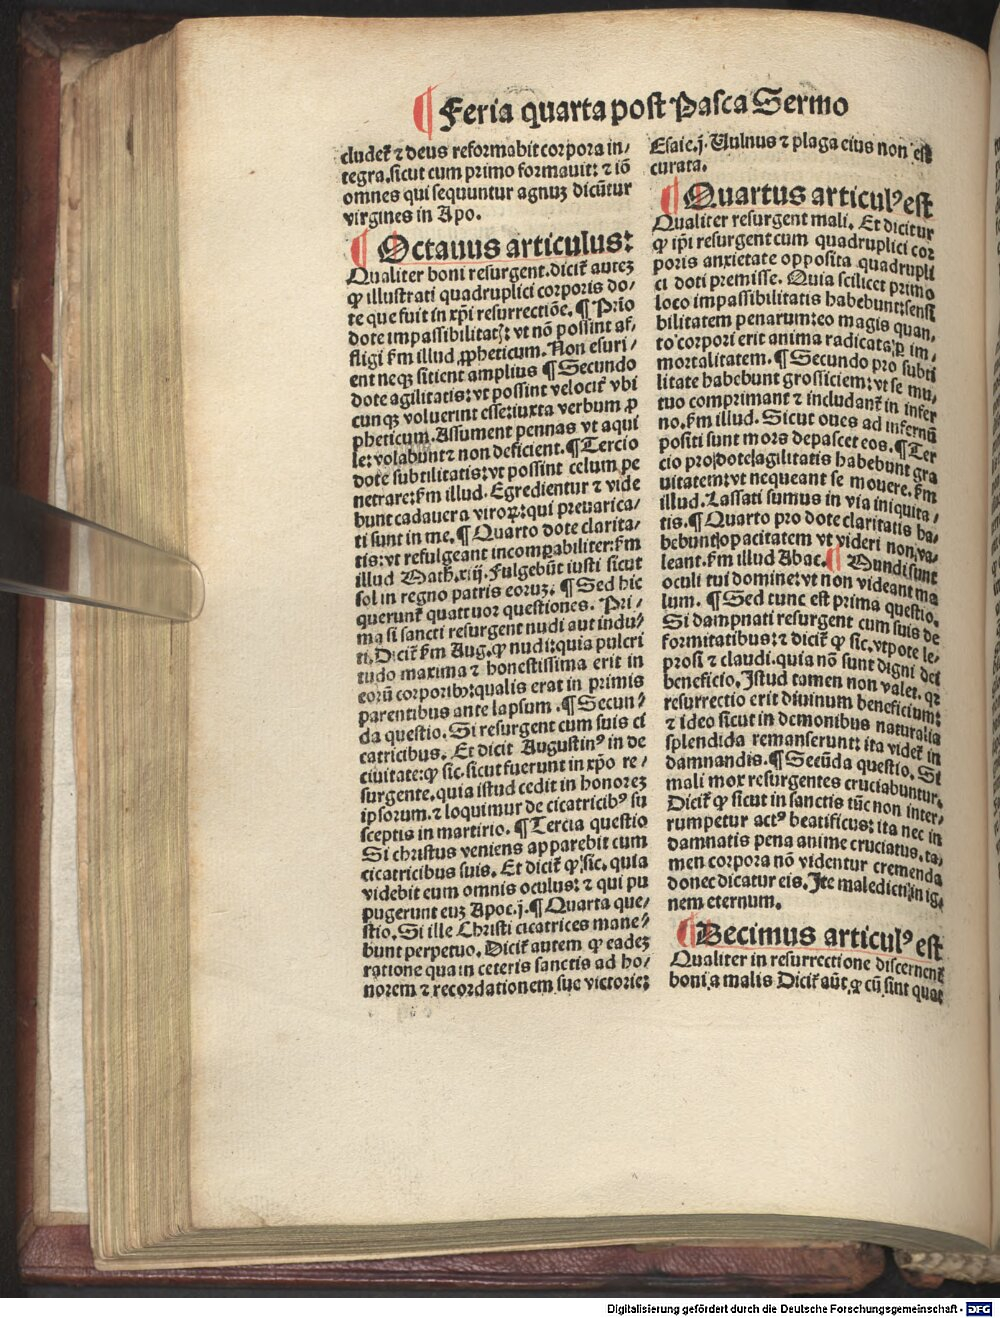 ¶ Feria quarta post Pasca Sermo
cludet᷑ ⁊ deus reformabit corpora in⸗
tegra.sicut cum primo formauit: ⁊ iõ
omnes qui sequuntur agnuꝫ dicũtur
virgines in Apo.
¶ Octauus articulus:
Qualiter boni resurgent.dicit᷑ auteꝫ
ꝙ illustrati quadruplici corporis do⸗
te que fuit in xp̄i resurrectiõe.¶ Prio
dote impassibilitatꝭ: vt nõ possint af⸗
fligi ẜm illud ꝓpheticum.Non esuri⸗
ent neqꝫ sitient amplius ¶ Secundo
dote agilitatis: vt possint velocit᷑ vbi
cunqꝫ voluerint esse: iuxta verbum ꝓ
pheticum.Assument pennas vt aqui
le: volabunt ⁊ non deficient.¶ Tercio
dote subtilitatis: vt possint celum pe
netrare: ẜm illud. Egredientur ⁊ vide
bunt cadauera viroꝝ: qui preuarica⸗
ti sunt in me.¶ Quarto dote clarita⸗
tis: vt refulgeant incomꝑabiliter: ẜm
illud Math.xiij. Fulgebũt iusti sicut
sol in regno patris eoruꝫ. ¶ Sed hic
querunt᷑ quattuor questiones. Pri⸗
ma si sancti resurgent nudi aut indu⸗
ti.Dicit᷑ ẜm Aug.ꝙ nudi: quia pulcri
tudo maxima ⁊ honestissima erit in
eorũ corporibꝫ: qualis erat in primis
parentibus ante lapsum .¶ Secun⸗
da questio. Si resurgent cum suis ci
catricibus. Et dicit Augustinꝰ in de
ciuitate: ꝙ sic. sicut fuerunt in xp̄o re⸗
surgente.quia istud cedit in honoreꝫ
ipsorum.⁊ loquimur de cicatricibꝰ su
sceptis in martirio. ¶ Tercia questio
Si christus veniens apparebit cum
cicatricibus suis. Et dicit᷑ ꝙ sic. quia
videbit eum omnis oculus: ⁊ qui pu
pugerunt euꝫ Apoc.j.¶ Quarta que⸗
stio.Si ille Christi cicatrices mane⸗
bunt perpetuo. Dicit᷑ autem ꝙ eadeꝫ
ratione qua in ceteris sanctis ad ho⸗
norem ⁊ recordationem sue victorie:
Esaie.j. Vulnus ⁊ plaga eius non est
curata.
¶ Quartus articulꝰ est
Qualiter resurgent mali. Et dicitur
ꝙ ip̄i resurgent cum quadruplici cor
poris anxietate opposita quadrupli
ci doti premisse. Quia scilicet primo
loco impassibilitatis habebunt: sensi
bilitatem penarum: eo magis quan⸗
to corpori erit anima radicata: ꝑ im⸗
mortalitatem. ¶ Secundo pro subti
litate habebunt grossiciem: vt se mu⸗
tuo comprimant ⁊ includant᷑ in infer
no.ẜm illud. Sicut oues ad infernũ
positi sunt mors depascet eos. ¶ Ter
cio pro dote agilitatis habebunt gra
uitatem: vt nequeant se mouere.ẜm
illud. Lassati sumus in via iniquita⸗
tis.¶ Quarto pro dote claritatis ha⸗
bebunt opacitatem vt videri non va⸗
leant.ẜm illud Abac. ¶ Mundi sunt
oculi tui domine: vt non videant ma
lum. ¶ Sed tunc est prima questio.
Si dampnati resurgent cum suis de
formitatibus: ⁊ dicit᷑ ꝙ sic.vtpote le⸗
prosi ⁊ claudi.quia nõ sunt digni dei
beneficio. Istud tamen non valet. qꝛ
resurrectio erit diuinum beneficium:
⁊ ideo sicut in demonibus naturalia
splendida remanserunt: ita videt᷑ in
damnandis. ¶ Secũda questio. Si
mali mox resurgentes cruciabuntur.
Dicit᷑ ꝙ sicut in sanctis tũc non inter⸗
rumpetur actꝰ beatificus: ita nec in
damnatis pena anime cruciatus.ta⸗
men corpora nõ videntur cremenda
donec dicatur eis. Ite maledicti in ig⸗
nem eternum.
¶ Decimus articulꝰ est
Qualiter in resurrectione discernent᷑
boni a malis Dicit᷑ aũt ꝙ cũ sint quat
Digitalisierung gefördert durch die Deutsche Forschungsgemeinschaft - DFG